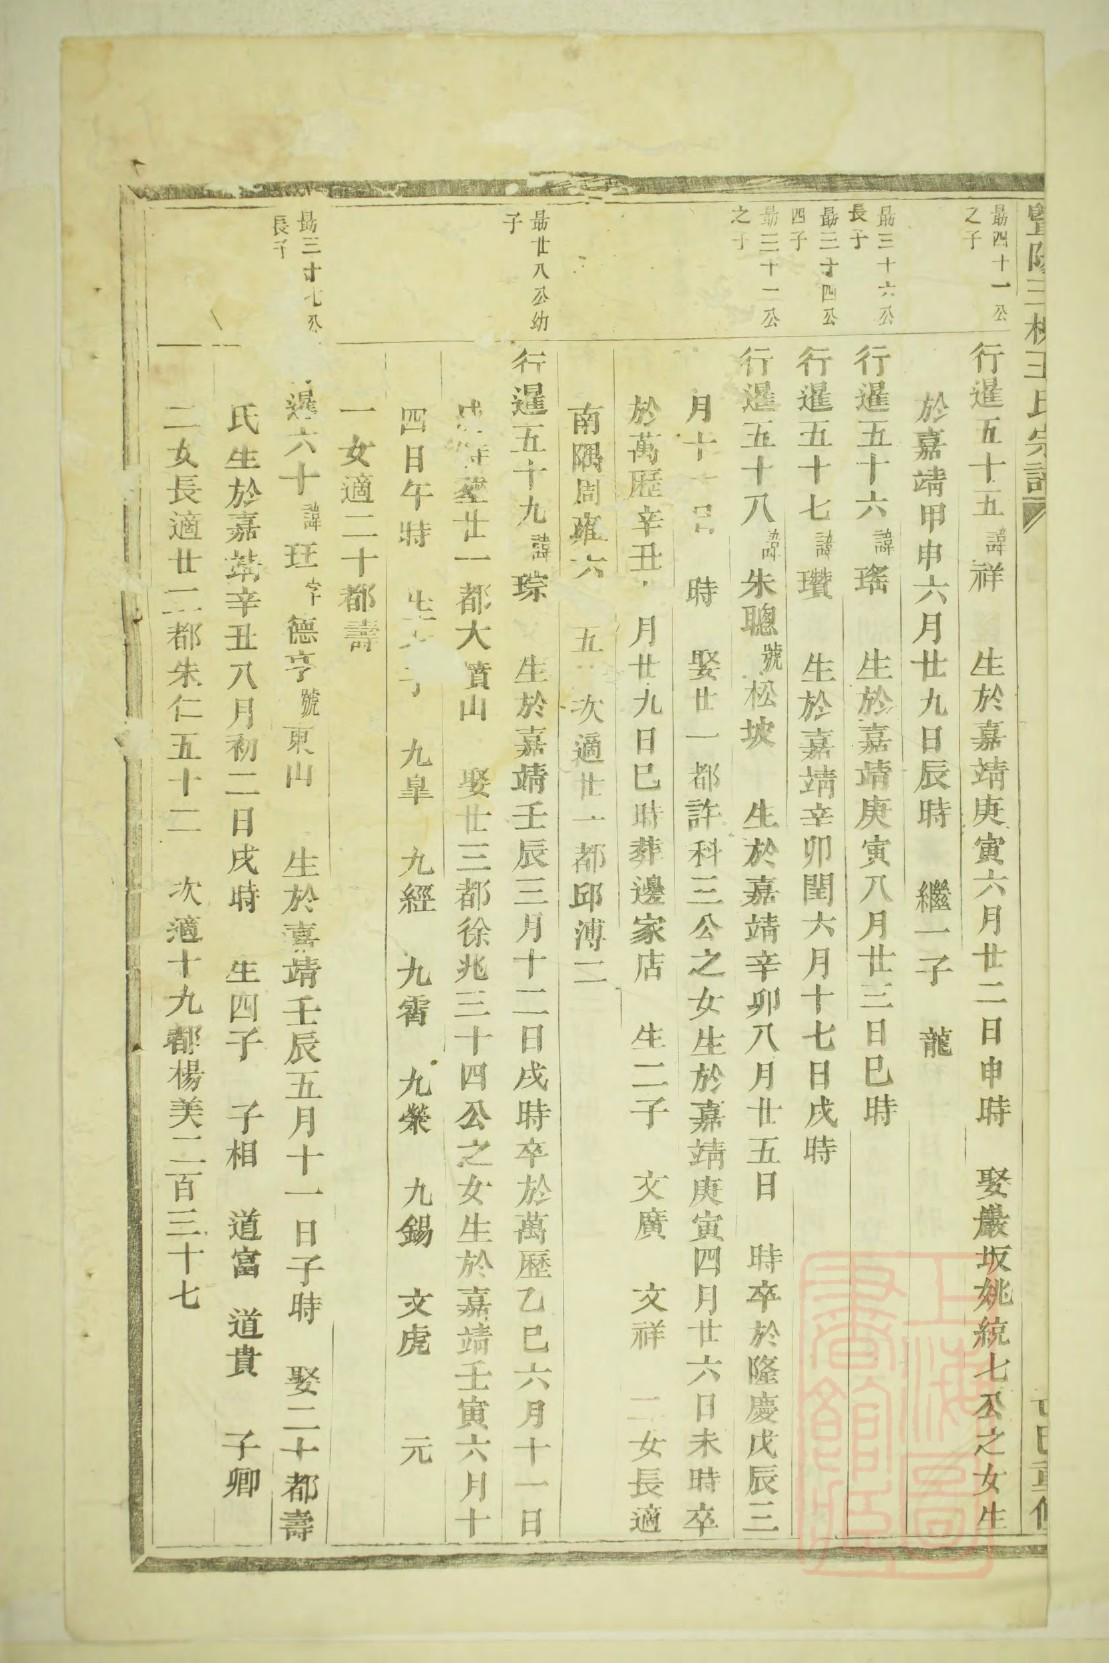 暨陽三桃王氏宗譜
最四十一公之子
行暹五十五諱祥 生於嘉靖庚寅六月廿二日申時 娶嚴坂姚統七公之女生
於嘉靖甲申六月廿九日辰時 繼一子 龍
最三十六公長子
行暹五十六諱瑤 生於嘉靖庚寅八月廿三日巳時
最三十四公四子
行暹五十七諱瓚 生於嘉靖辛卯閏六月十七日戌時
最三十二公之子
行暹五十八諱朱聰號松坡 生於嘉靖辛卯八月廿五日 時卒於隆慶戊辰三
月十 日 時 娶廿一都許科三公之女生於嘉靖庚寅四月廿六日未時卒
於萬歷辛丑 月廿九日巳時葬邊家店 生二子 文廣 文祥 二女長適
南隅周雍六 五 次適廿一都邱溥二
最廿八公幼子
行暹五十九諱琮 生於嘉靖壬辰三月十二日戌時卒於萬歷乙巳六月十一日
時葬廿一都大嶺山 娶廿三都徐兆三十四公之女生於嘉靖壬寅六月十
四日午時 生 子 九皐 九經 九霄 九榮 九錫 文虎 元
一女適二十都壽
最三十七公長子
暹六十諱玨字德亨號東山 生於嘉靖壬辰五月十一日子時 娶二十都壽
氏生於嘉靖辛丑八月初二日戌時 生四子 子相 道富 道貴 子卿
二女長適廿二都朱仁五十二 次適十九都楊美二百三十七
上海圖書館藏